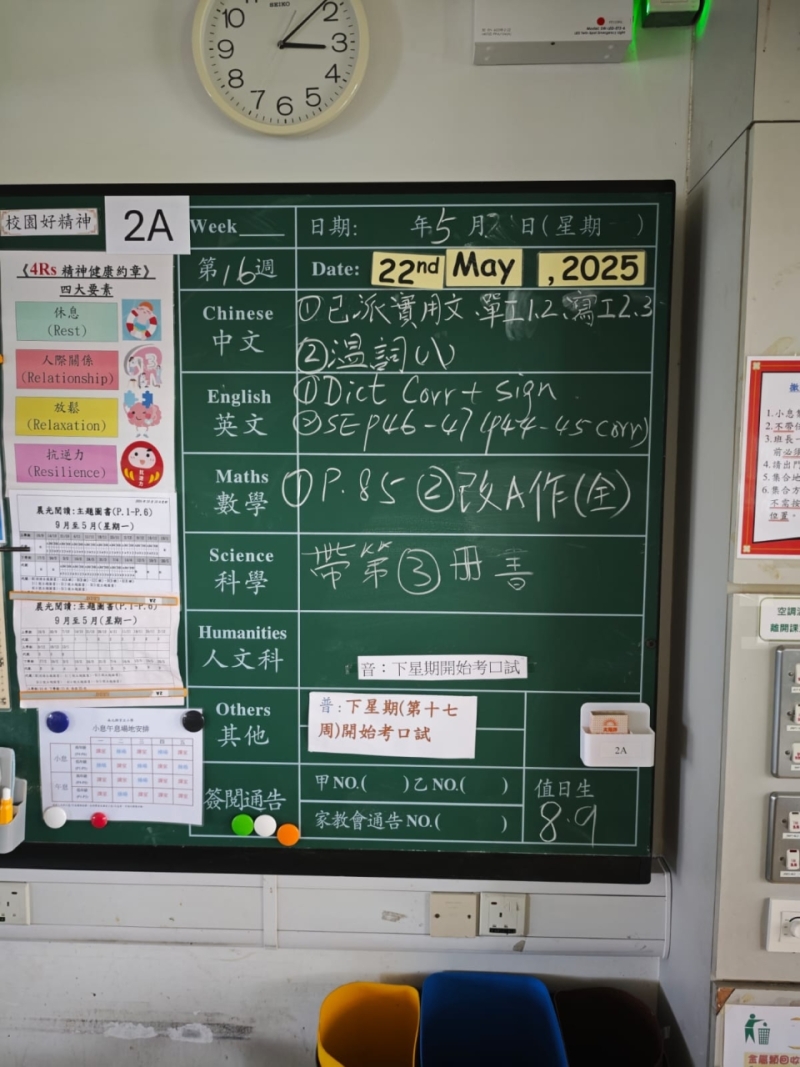 10
9
8
7
6
5
4
3
SEIKO
校園好精神
2A
Week
日期: 年5月 日(星期 )
第16週
Date: 22nd May , 2025
《4Rs 精神健康約章》
四大要素
休息
(Rest)
人際關係
(Relationship)
放鬆
(Relaxation)
抗逆力
(Resilience)
Chinese
中文
①已派實用文、單工1.2、寫工2.3
②溫詞(八)
English
英文
①Dict Corr + sign
②SE p46-47 (p44-45 corr)
Maths
數學
①P.85 ②改A作(全)
Science
科學
帶第③冊書
Humanities
人文科
音：下星期開始考口試
Others
其他
普：下星期(第十七
周)開始考口試
2A
簽閱通告
甲NO.( )乙NO.( )
家教會通告NO.( )
值日生
8.9
晨光閱讀:主題圖書(P.1-P.6)
9月至5月(星期一)
晨光閱讀:主題圖書(P.1-P.6)
9月至5月(星期一)
小息午息場地安排
小息
午息
1.小息
2.不帶
3.班長
前必須
4.請出門
5.集合地
6.集合方
不需按
位置。
空調
離開課